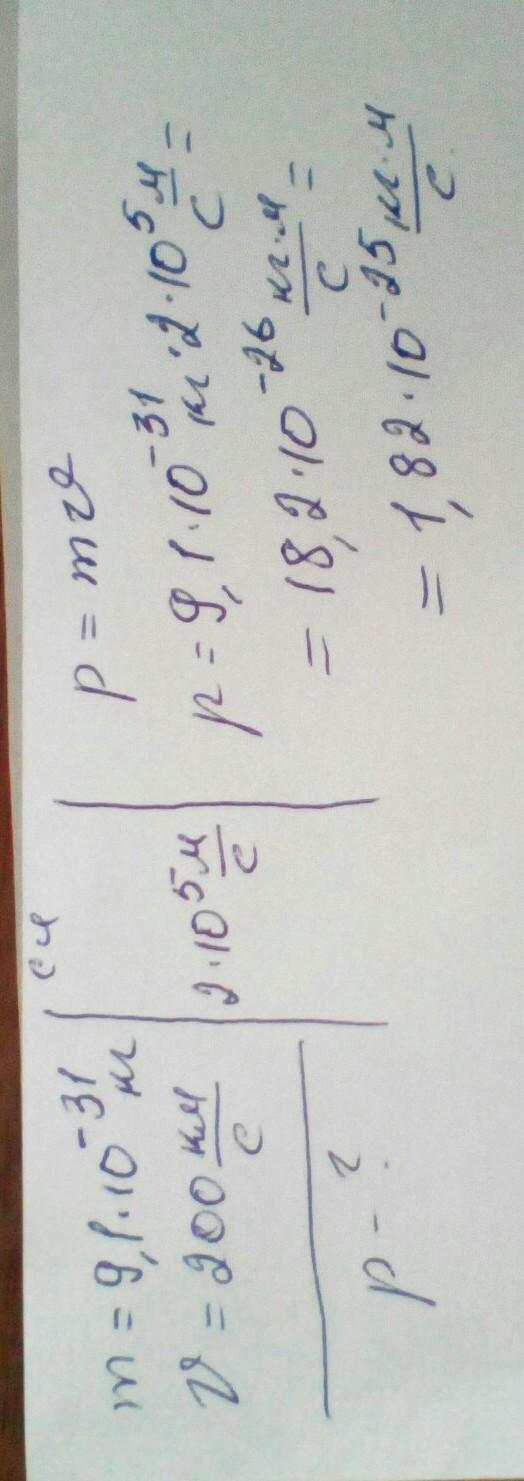 m = 9,1·10⁻³¹ кг
υ = 200 км/с
p - ?
си
2·10⁵ м/с
p = mυ
p = 9,1·10⁻³¹ кг·2·10⁵ м/с =
= 18,2·10⁻²⁶ кг·м/с =
= 1,82·10⁻²⁵ кг·м/с